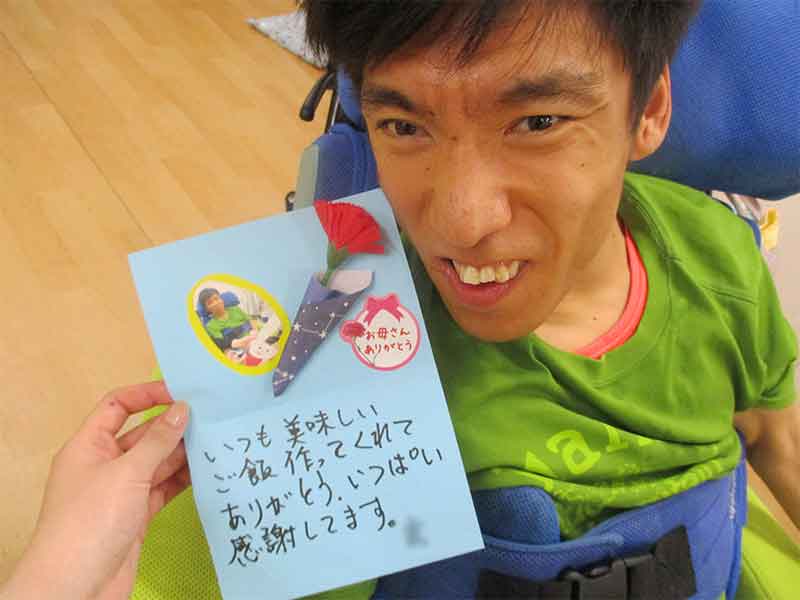 お母さん
ありがとう
いつも 美味しい
ご飯 作ってくれて
ありがとう、いっぱい
感謝してます。